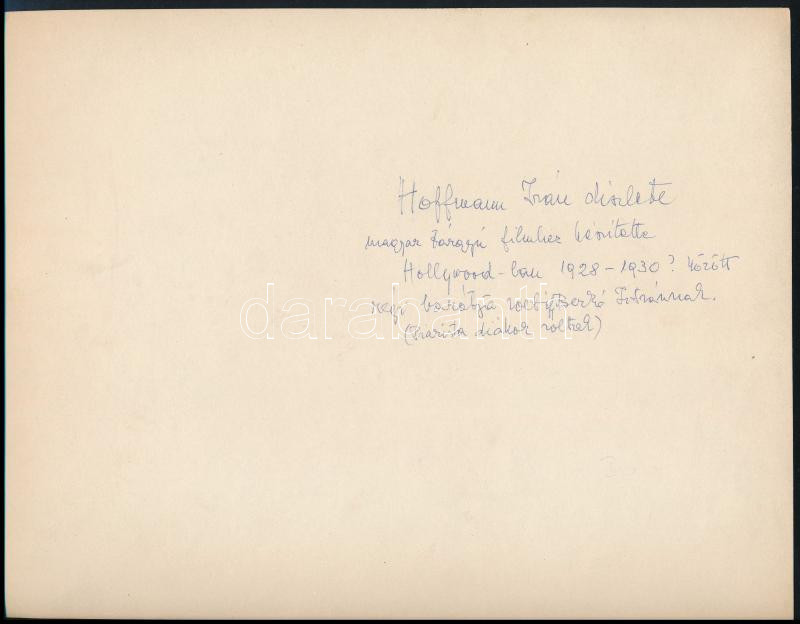 Hoffmann Iván díszlete
magyar tárgyú filmhez készítette
Hollywood-ban 1928-1930? között
régi barátja volt Benkő Istvánnak.
(Piarista diákok voltak)
darabanth